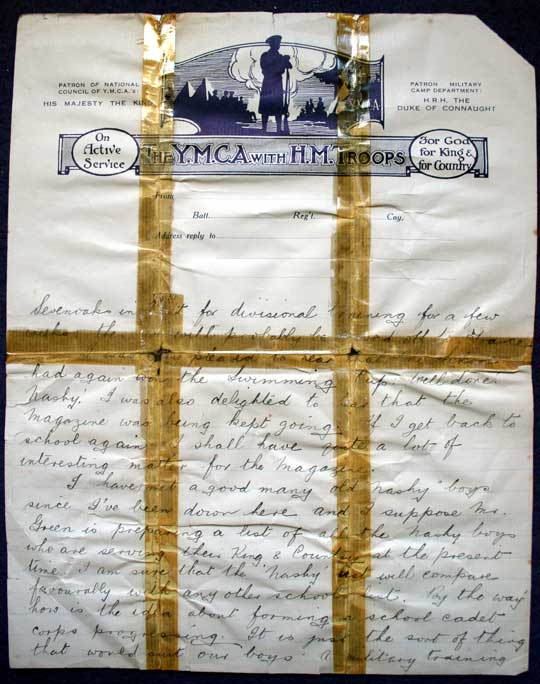 PATRON OF NATIONAL
COUNCIL OF Y.M.C.A.'s:
HIS MAJESTY THE KING
PATRON MILITARY
CAMP DEPARTMENT:
H.R.H. THE
DUKE OF CONNAUGHT
On
Active
Service
THE Y.M.C.A WITH H.M. TROOPS
For God
for King &
for Country
From
Batt. Reg't. Coy.
Address reply to
Sevenoaks in for divisional training for a few
probably be
pleased to hear
had again won the Swimming Cup. Well done
Nashy'. I was also delighted to that the
Magazine was being kept going. If I get back to
school again I shall have quite a lot of
interesting matter for the Magazine.
I have met a good many old "Nashy" boys
since I've been down here and I suppose Mr.
Green is preparing a list of all the Nashy boys
who are serving their King & Country at the present
time. I am sure that the "Nashy" list will compare
favourably with any other school list. 'By the way'
how is the idea about forming a school cadet
corps progressing. It is just the sort of thing
that would suit our boys A military training